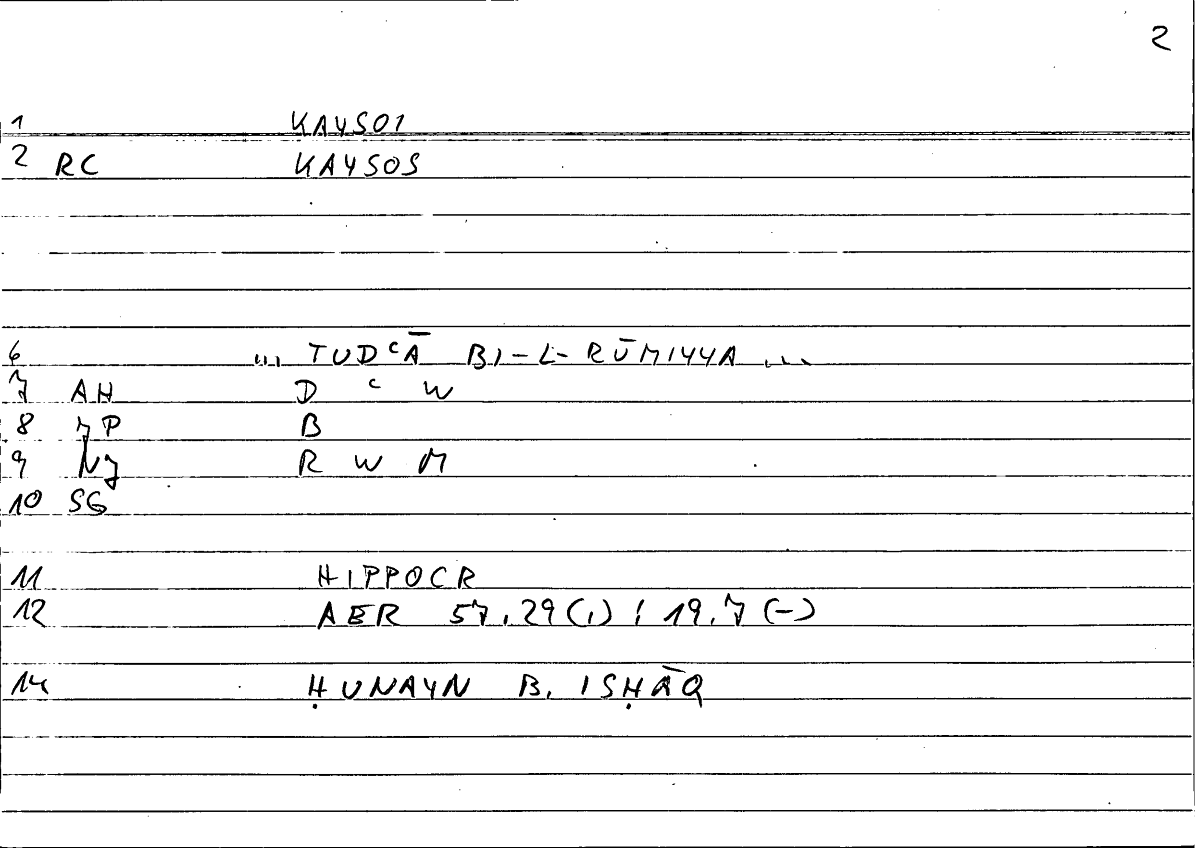 2
1 KAYSOI
2 RC KAYSOS
6 ... TUDʿĀ BI-L-RŪMIYYA ...
7 AH D ʿ W
8 B
9 NJ R W M
10 SG
11 HIPPOCR
12 AER 57,29(,) ; 19,7 (-)
14 ḤUNAYN B. ISḤĀQ